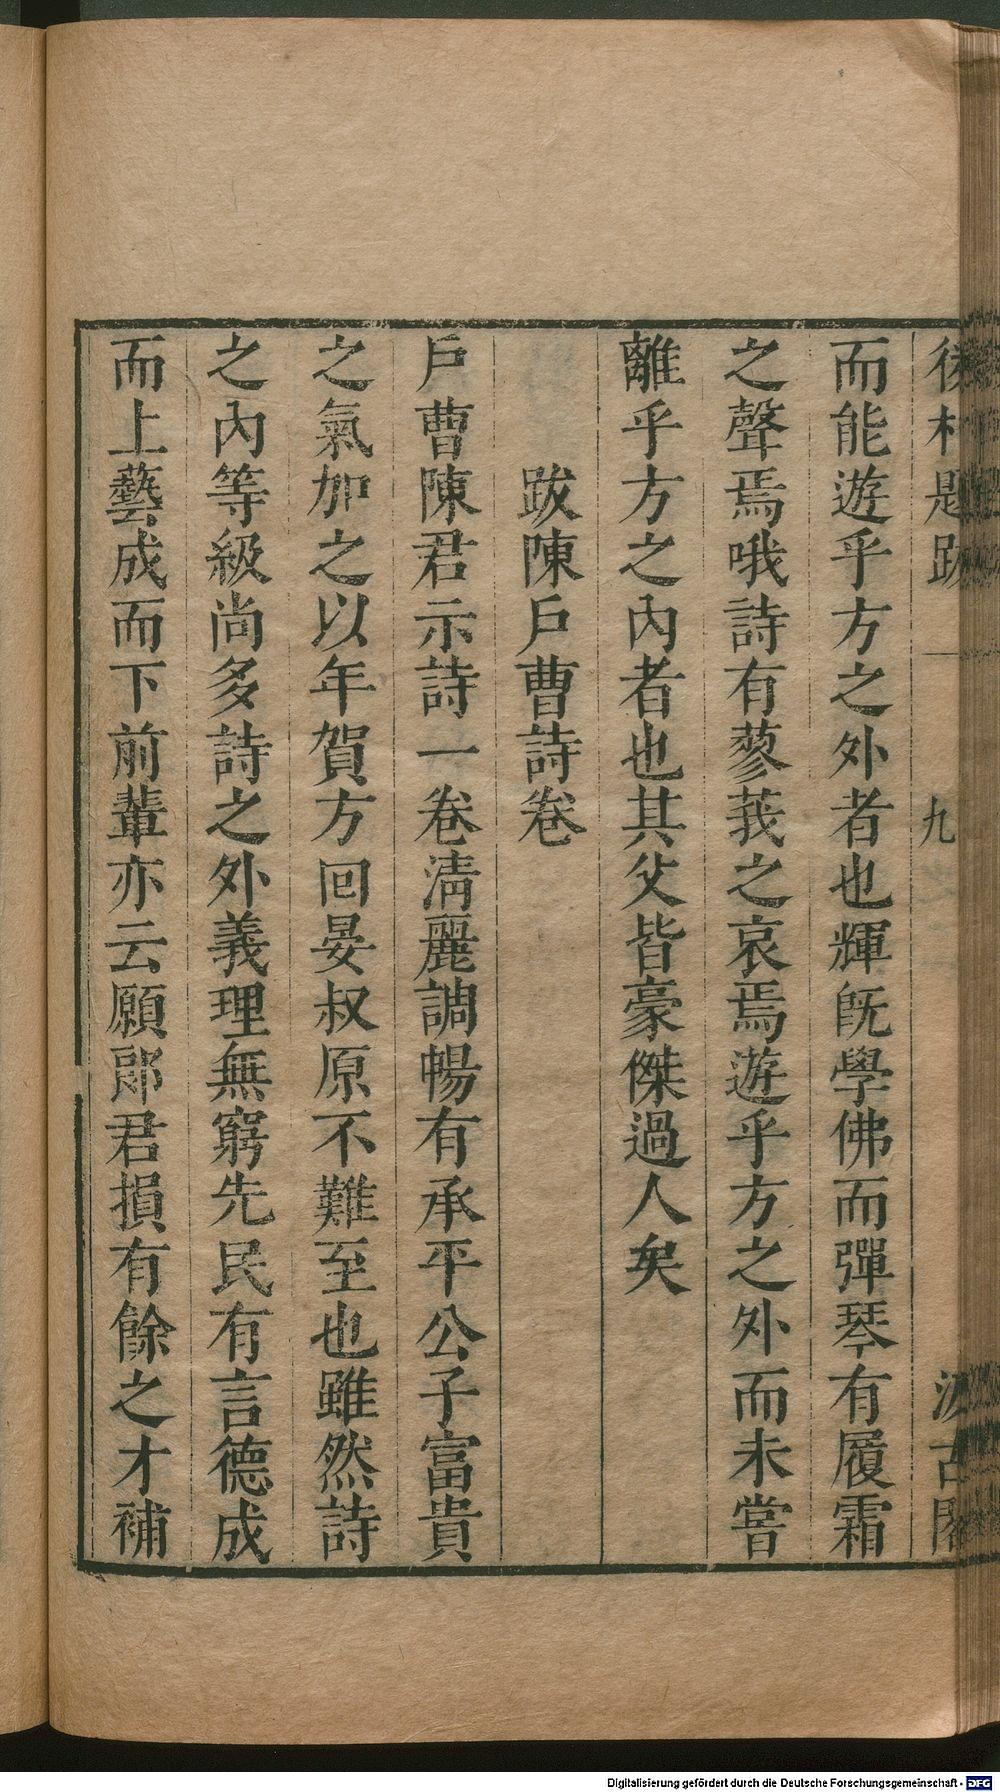 後村題跋 一 九 汲古閣
而能遊乎方之外者也輝旣學佛而彈琴有履霜
之聲焉哦詩有蓼莪之哀焉遊乎方之外而未嘗
離乎方之內者也其父皆豪傑過人矣
跋陳戶曹詩卷
戶曹陳君示詩一卷淸麗調暢有承平公子富貴
之氣加之以年賀方回晏叔原不難至也雖然詩
之內等級尚多詩之外義理無窮先民有言德成
而上藝成而下前輩亦云願郎君損有餘之才補
Digitalisierung gefördert durch die Deutsche Forschungsgemeinschaft - DFG